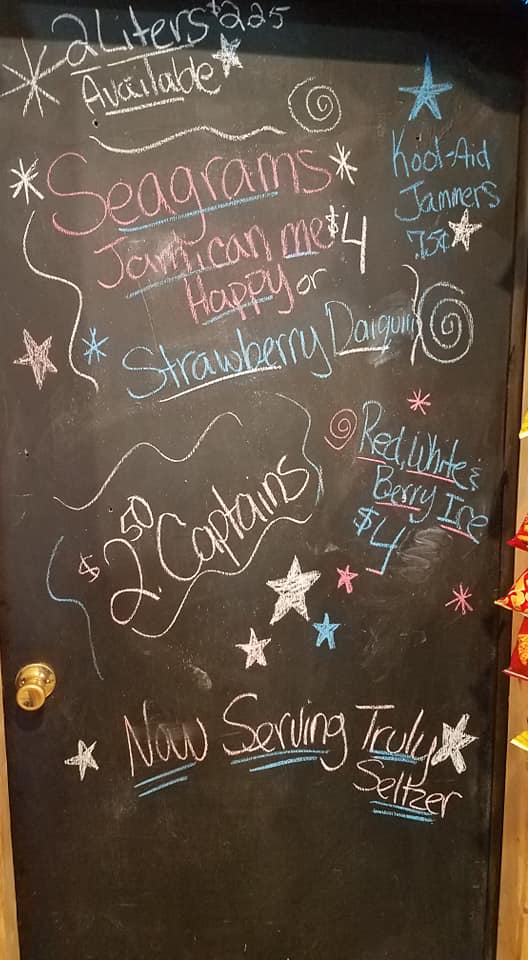 2 Liters $2.25
Available
Kool-Aid
Jammers
75¢
Seagrams
Jamican me $4
Happy or
Strawberry Daiquiri
Red, White &
Berry Ice
$4
$2.50 Captains
Now Serving Truly
Seltzer